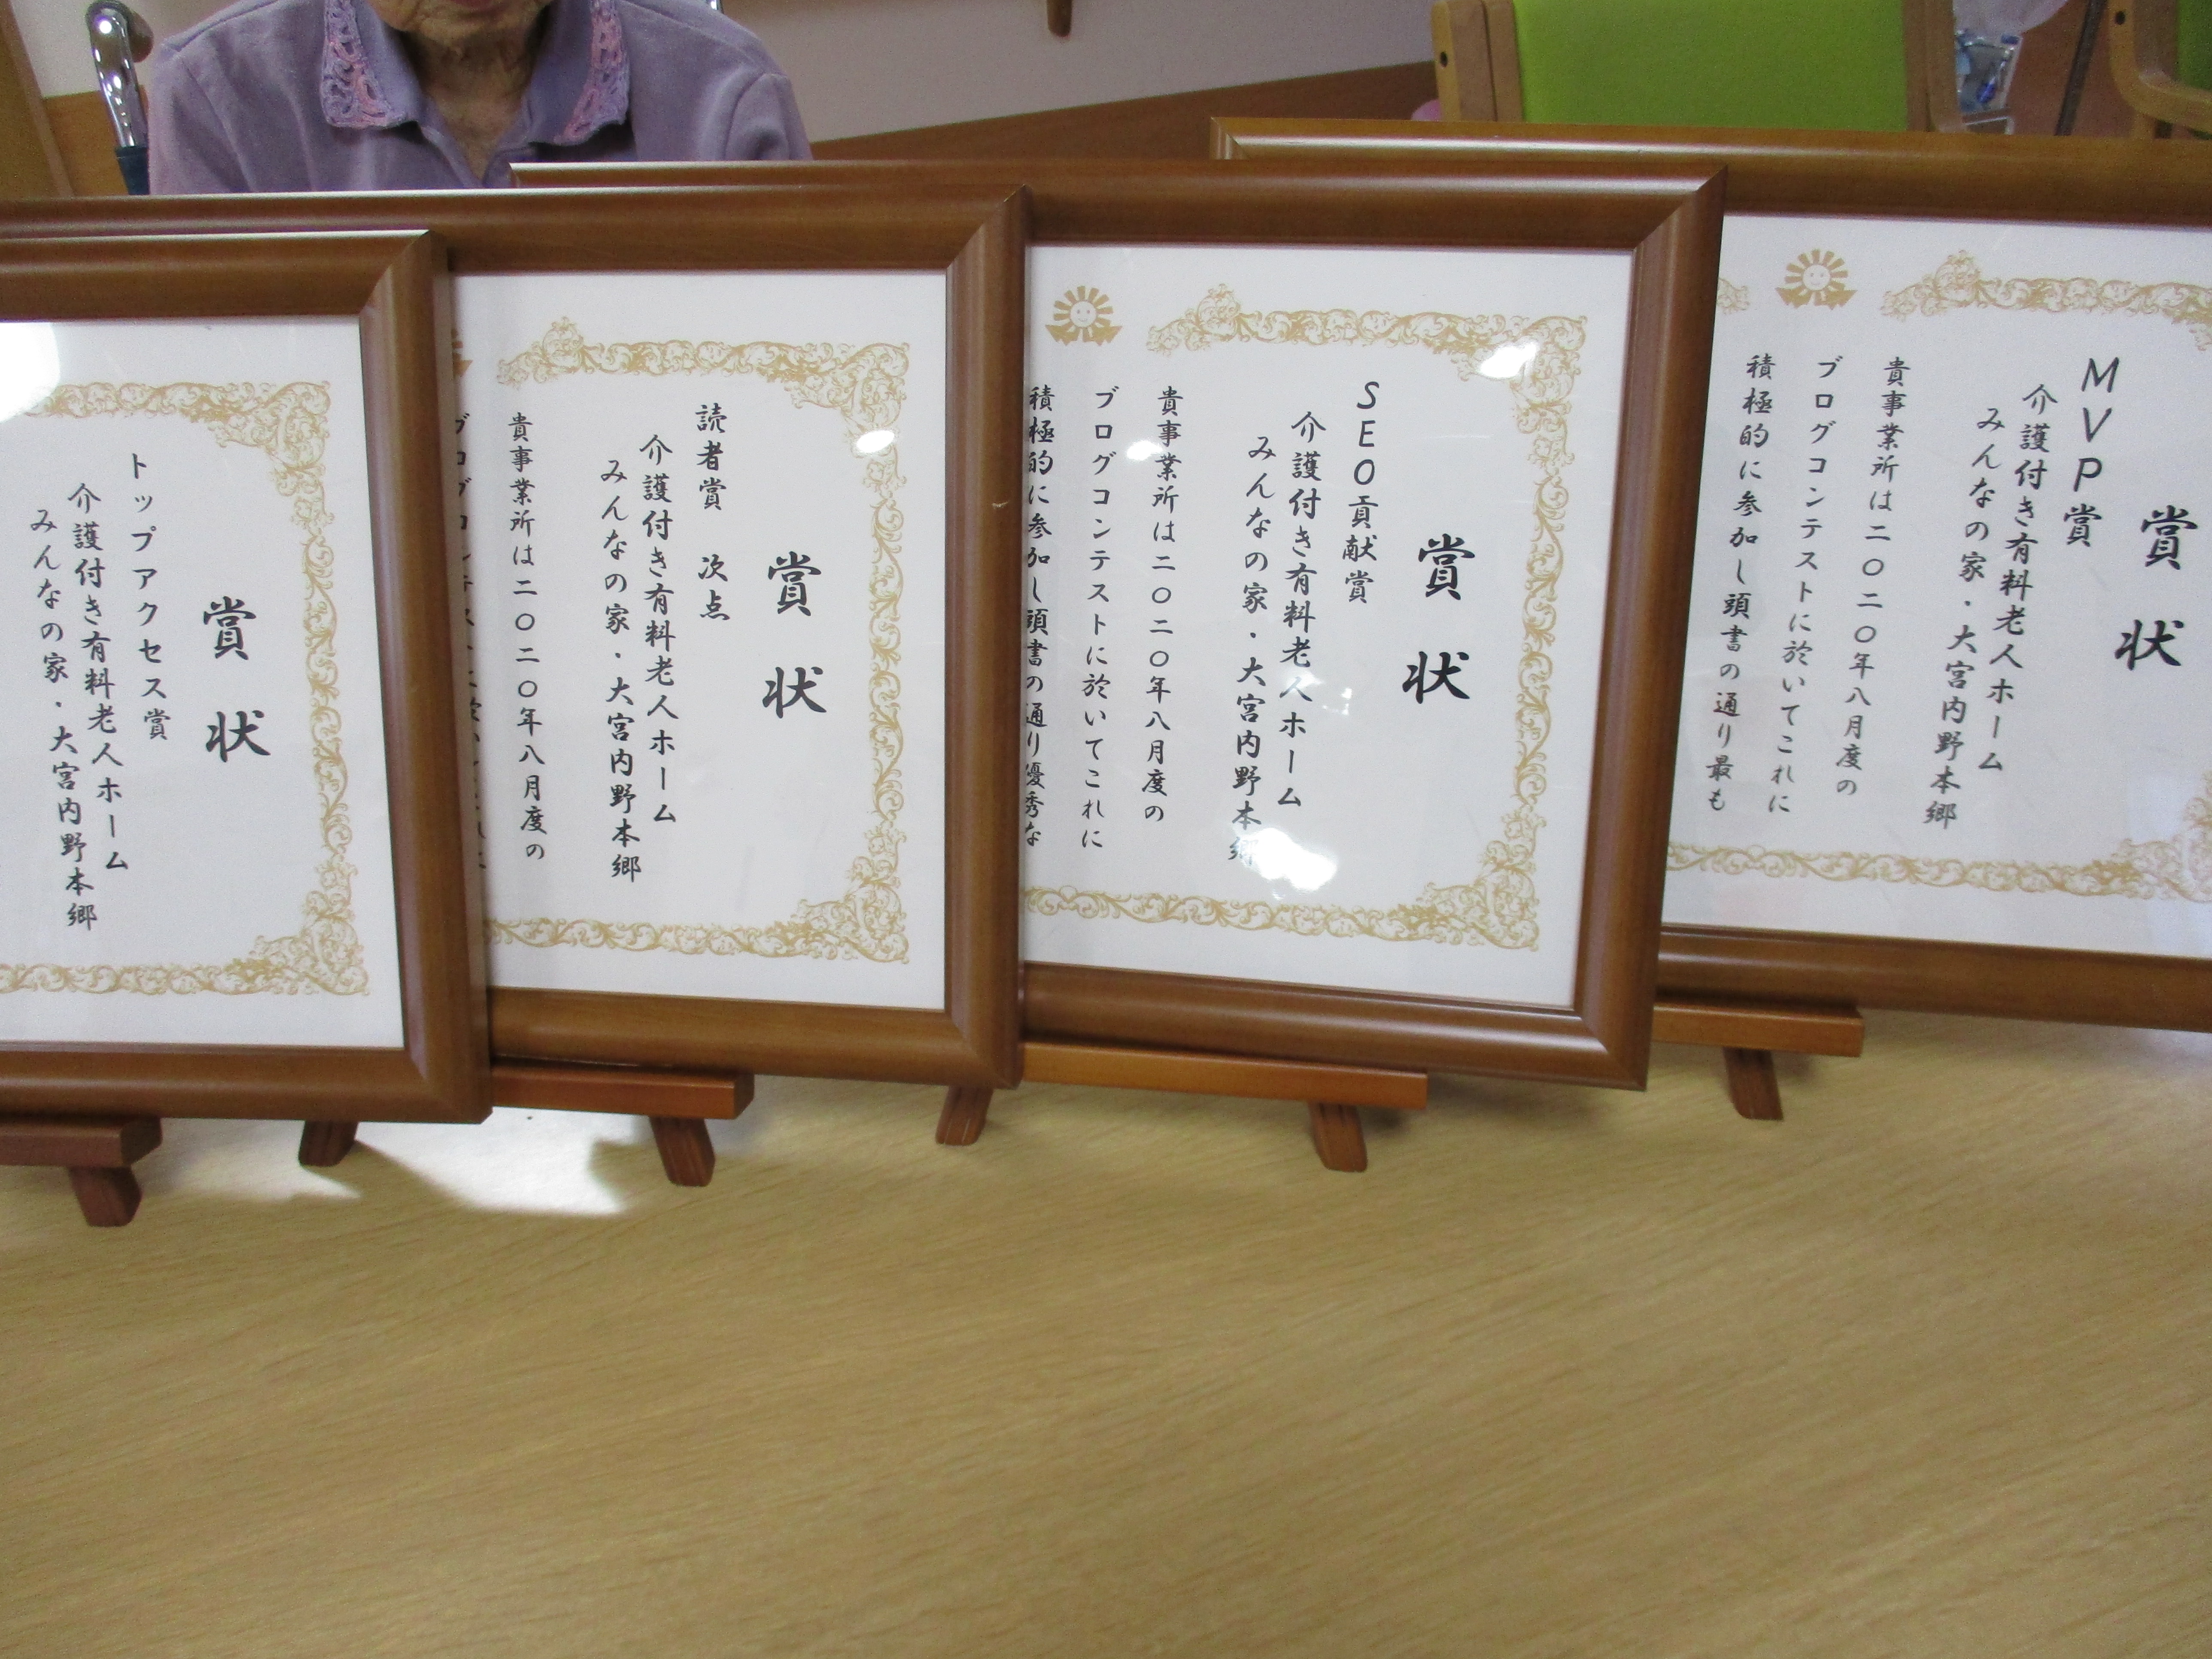 賞状
トップアクセス賞
介護付き有料老人ホーム
みんなの家・大宮内野本郷
賞状
読者賞 次点
介護付き有料老人ホーム
みんなの家・大宮内野本郷
貴事業所は二〇二〇年八月度の
賞状
SEO貢献賞
介護付き有料老人ホーム
みんなの家・大宮内野本郷
貴事業所は二〇二〇年八月度の
ブログコンテストに於いてこれに
積極的に参加し頭書の通り優秀な
賞状
MVP賞
介護付き有料老人ホーム
みんなの家・大宮内野本郷
貴事業所は二〇二〇年八月度の
ブログコンテストに於いてこれに
積極的に参加し頭書の通り最も